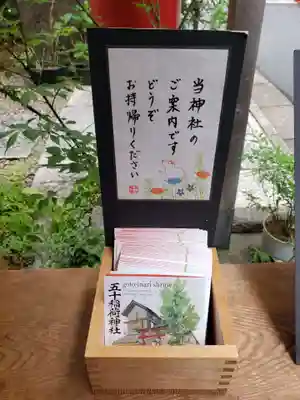 当神社の
ご案内です
どうぞ
お持帰りください
gotoinari shrine
五十稲荷神社